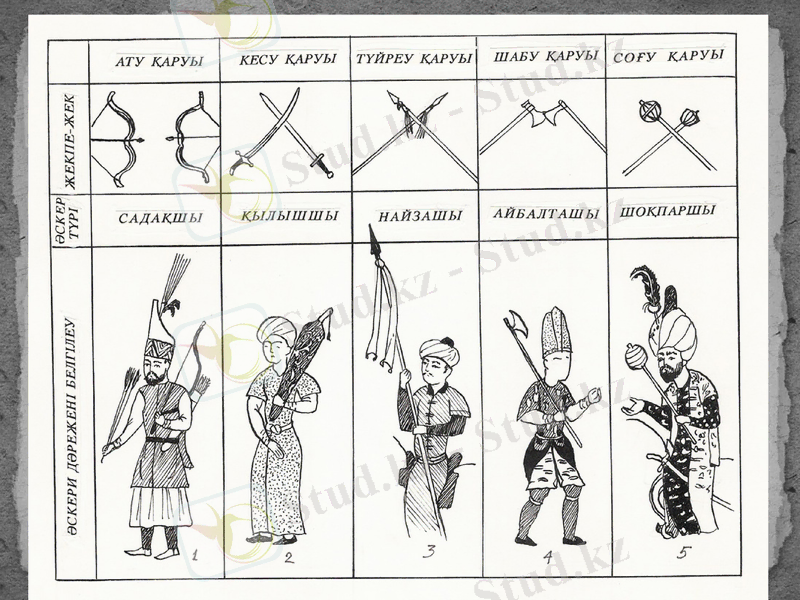 АТУ ҚАРУЫ
КЕСУ ҚАРУЫ
ТҮЙРЕУ ҚАРУЫ
ШАБУ ҚАРУЫ
СОҒУ ҚАРУЫ
ЖЕКПЕ-ЖЕК
ӘСКЕР
ТҮРІ
САДАҚШЫ
ҚЫЛЫШШЫ
НАЙЗАШЫ
АЙБАЛТАШЫ
ШОҚПАРШЫ
ӘСКЕРИ ДӘРЕЖЕНІ БЕЛГІЛЕУ
1
2
3
4
5
Stud.kz - Stud.kz
Stud.kz - Stud.kz
Stud.kz - Stud.kz
Stud.kz